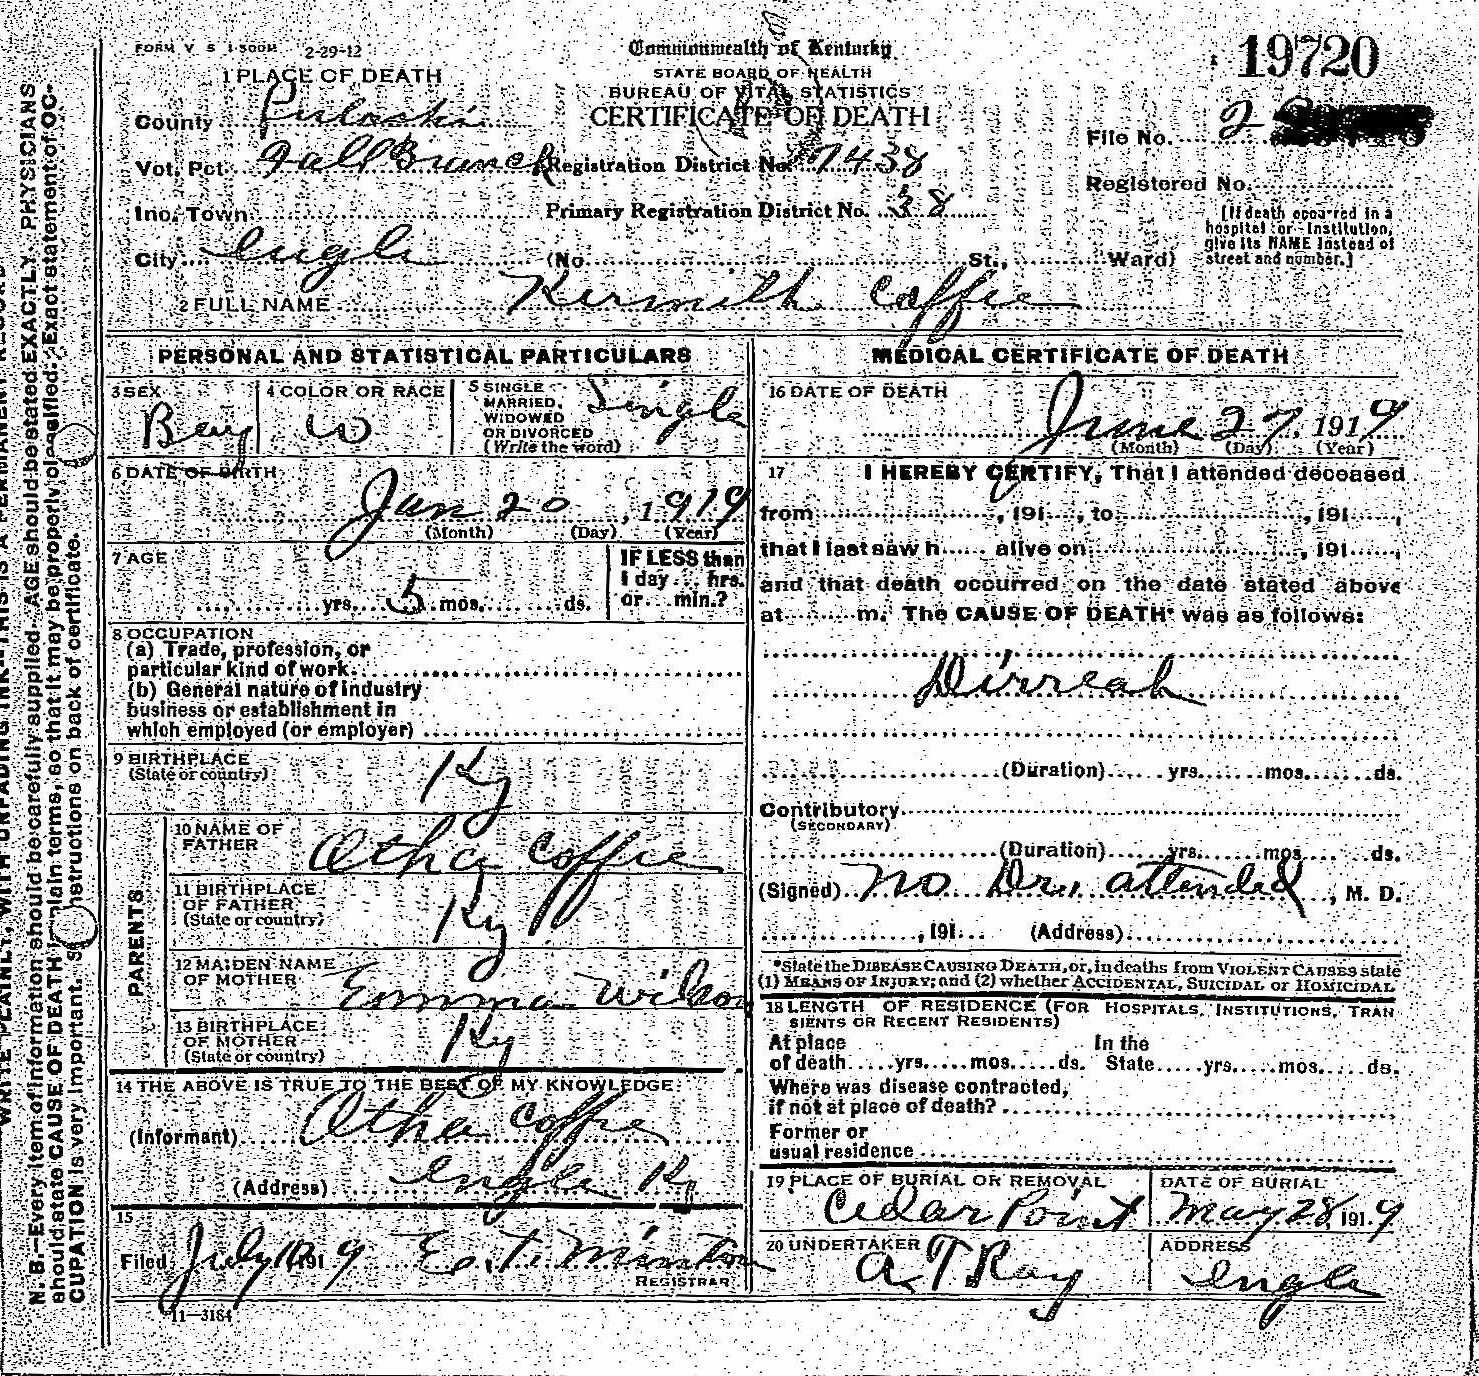 FORM V S 1-500M 2-29-12
Commonwealth of Kentucky
STATE BOARD OF HEALTH
BUREAU OF VITAL STATISTICS
CERTIFICATE OF DEATH
19720
1 PLACE OF DEATH
County Pulaski
File No. 2
Vot. Pct. Fall Branch Registration District No. 7438
Registered No.
Inc. Town Primary Registration District No. 38
City Engle (No. St., Ward)
[If death occurred in a
hospital or institution,
give its NAME instead of
street and number.]
2 FULL NAME Kermith Coffie
PERSONAL AND STATISTICAL PARTICULARS
3 SEX Boy
4 COLOR OR RACE W
5 SINGLE
MARRIED,
WIDOWED
OR DIVORCED
(Write the word)
Single
6 DATE OF BIRTH
Jan 20, 1919
(Month) (Day) (Year)
7 AGE
yrs. 5 mos. ds.
IF LESS than
1 day hrs.
or min.?
8 OCCUPATION
(a) Trade, profession, or
particular kind of work
(b) General nature of industry
business or establishment in
which employed (or employer)
9 BIRTHPLACE
(State or country)
Ky
PARENTS
10 NAME OF
FATHER
Otha Coffie
11 BIRTHPLACE
OF FATHER
(State or country)
Ky
12 MAIDEN NAME
OF MOTHER
Emma Wilson
13 BIRTHPLACE
OF MOTHER
(State or country)
Ky
14 THE ABOVE IS TRUE TO THE BEST OF MY KNOWLEDGE
(Informant) Otha Coffie
(Address) Engle Ky
15
Filed July 10 191 9 E. T. Minton
REGISTRAR
11-3184
MEDICAL CERTIFICATE OF DEATH
16 DATE OF DEATH
June 27, 1919
(Month) (Day) (Year)
17 I HEREBY CERTIFY, That I attended deceased
from , 191 , to , 191 ,
that I last saw h alive on , 191 ,
and that death occurred on the date stated above
at m. The CAUSE OF DEATH* was as follows:
Dirreah
(Duration) yrs. mos. ds.
Contributory
(SECONDARY)
(Duration) yrs. mos. ds.
(Signed) No Drs. attended, M. D.
, 191 (Address)
*State the DISEASE CAUSING DEATH, or, in deaths from VIOLENT CAUSES state
(1) MEANS OF INJURY; and (2) whether ACCIDENTAL, SUICIDAL or HOMICIDAL
18 LENGTH OF RESIDENCE (FOR HOSPITALS, INSTITUTIONS, TRAN
SIENTS OR RECENT RESIDENTS)
At place In the
of death yrs. mos. ds. State yrs. mos. ds.
Where was disease contracted,
if not at place of death?
Former or
usual residence
19 PLACE OF BURIAL OR REMOVAL
Cedar Point
DATE OF BURIAL
May 28 1919
20 UNDERTAKER
A T Ray
ADDRESS
Engle
N. B.—Every item of information should be carefully supplied. AGE should be stated EXACTLY. PHYSICIANS
should state CAUSE OF DEATH in plain terms, so that it may be properly classified. Exact statement of OC-
CUPATION is very important. See instructions on back of certificate.